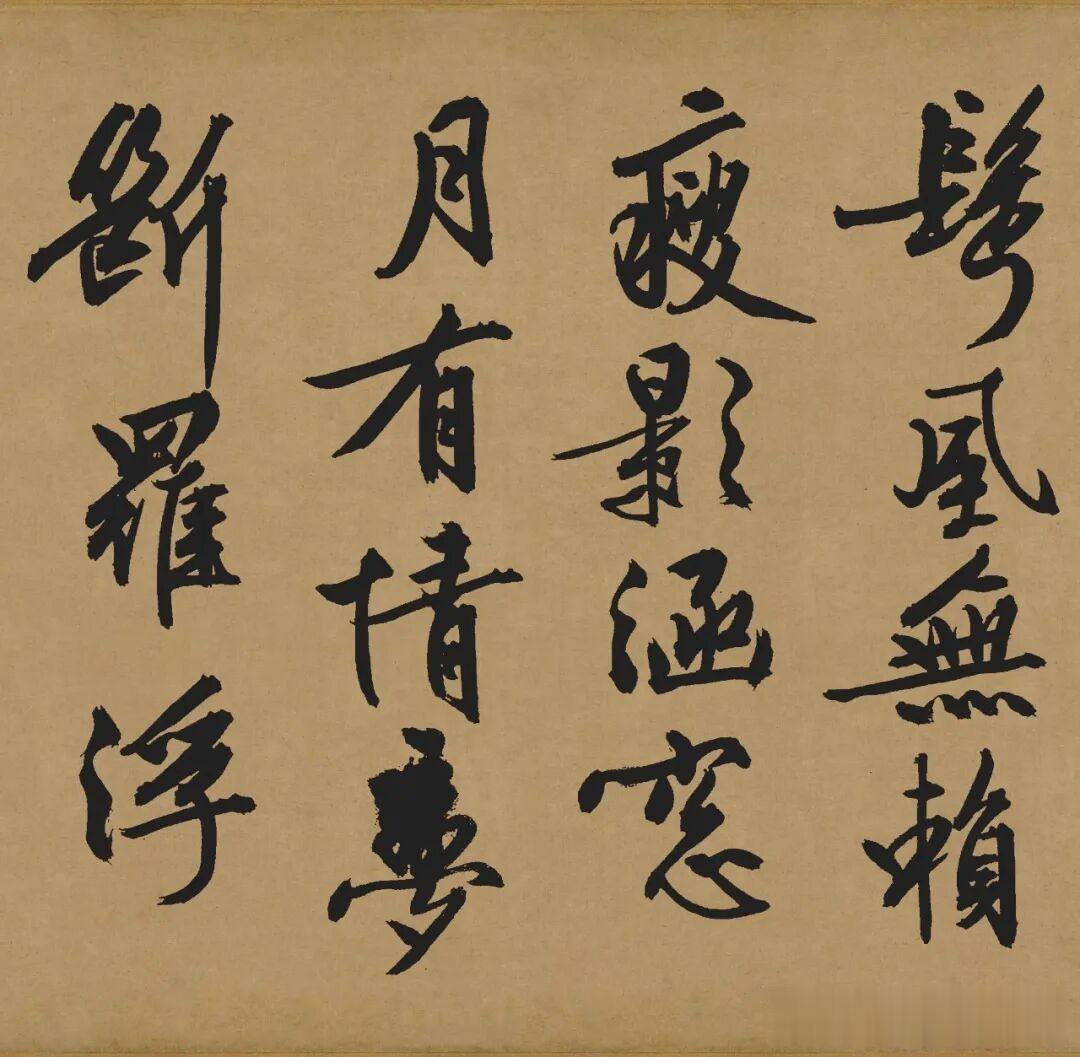 風無賴
瘦影涵窓
月有情夢
斷羅浮